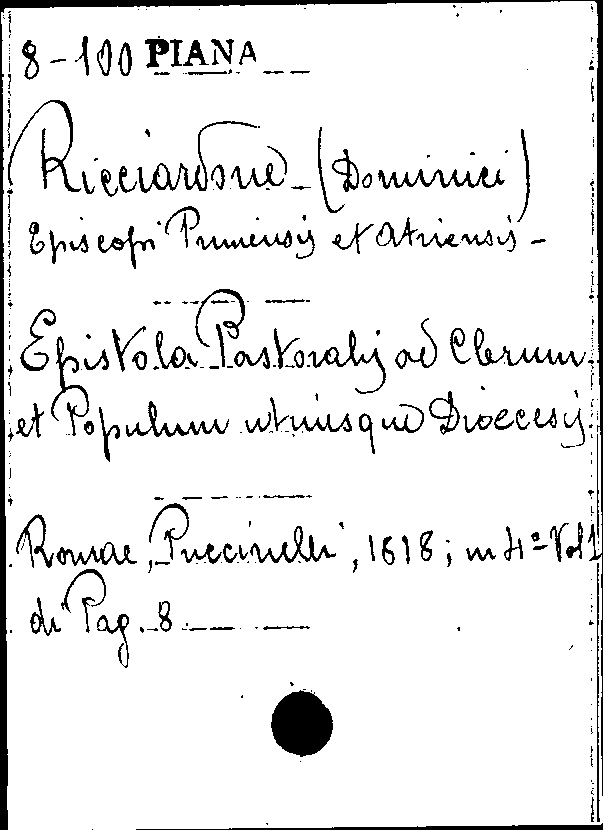 8-100 PIANA
Ricciardone - (Dominici)
Episcopi Pennensis et Atriensis -
Epistola Pastoralis ad Clerum
et Populum utriusque Dioecesis
Romae, Puccinelli, 1818; in 4º - Vol 1
di Pag. 8